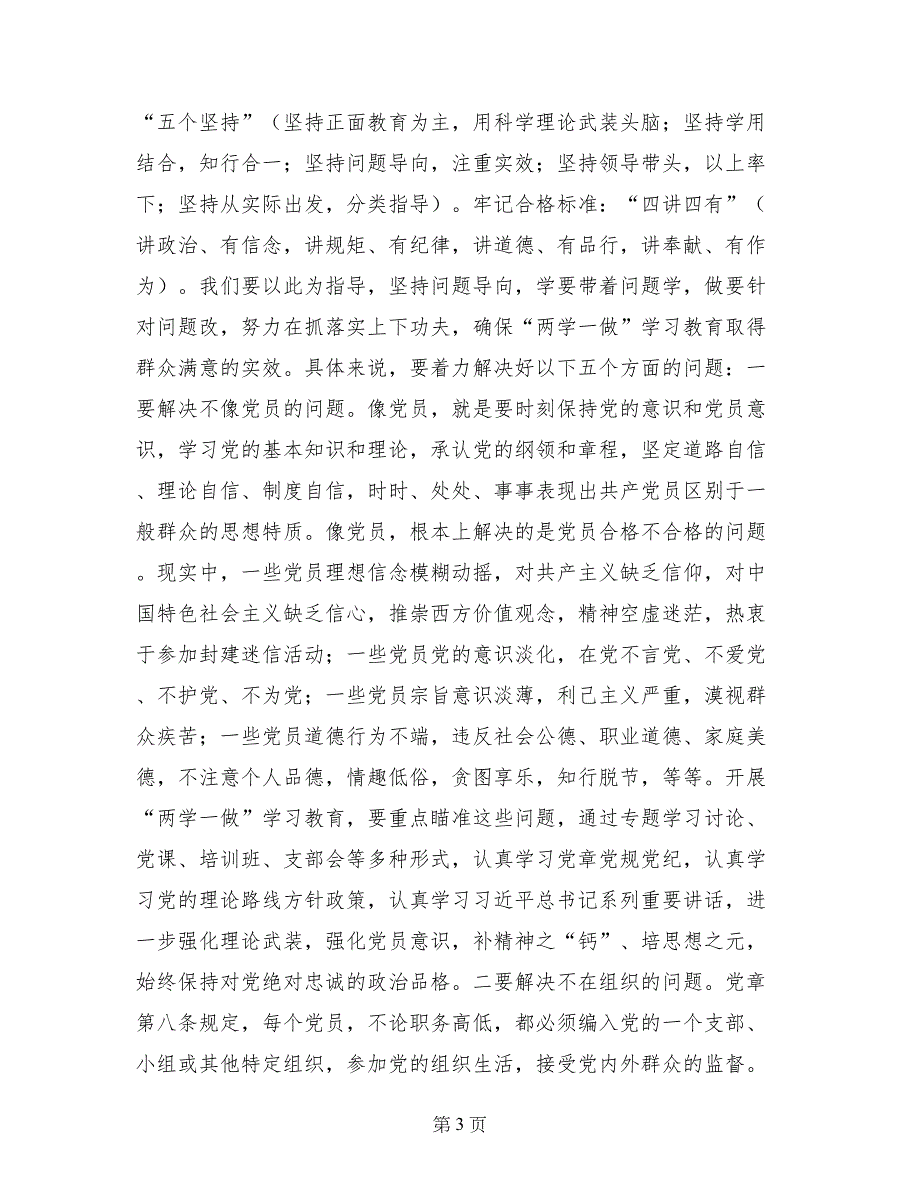 “五个坚持”（坚持正面教育为主，用科学理论武装头脑；坚持学用
结合，知行合一；坚持问题导向，注重实效；坚持领导带头，以上率
下；坚持从实际出发，分类指导）。牢记合格标准：“四讲四有”（
讲政治、有信念，讲规矩、有纪律，讲道德、有品行，讲奉献、有作
为）。我们要以此为指导，坚持问题导向，学要带着问题学，做要针
对问题改，努力在抓落实上下功夫，确保“两学一做”学习教育取得
群众满意的实效。具体来说，要着力解决好以下五个方面的问题：一
要解决不像党员的问题。像党员，就是要时刻保持党的意识和党员意
识，学习党的基本知识和理论，承认党的纲领和章程，坚定道路自信
、理论自信、制度自信，时时、处处、事事表现出共产党员区别于一
般群众的思想特质。像党员，根本上解决的是党员合格不合格的问题
。现实中，一些党员理想信念模糊动摇，对共产主义缺乏信仰，对中
国特色社会主义缺乏信心，推崇西方价值观念，精神空虚迷茫，热衷
于参加封建迷信活动；一些党员党的意识淡化，在党不言党、不爱党
、不护党、不为党；一些党员宗旨意识淡薄，利己主义严重，漠视群
众疾苦；一些党员道德行为不端，违反社会公德、职业道德、家庭美
德，不注意个人品德，情趣低俗，贪图享乐，知行脱节，等等。开展
“两学一做”学习教育，要重点瞄准这些问题，通过专题学习讨论、
党课、培训班、支部会等多种形式，认真学习党章党规党纪，认真学
习党的理论路线方针政策，认真学习习近平总书记系列重要讲话，进
一步强化理论武装，强化党员意识，补精神之“钙”、培思想之元，
始终保持对党绝对忠诚的政治品格。二要解决不在组织的问题。党章
第八条规定，每个党员，不论职务高低，都必须编入党的一个支部、
小组或其他特定组织，参加党的组织生活，接受党内外群众的监督。
第 3 页